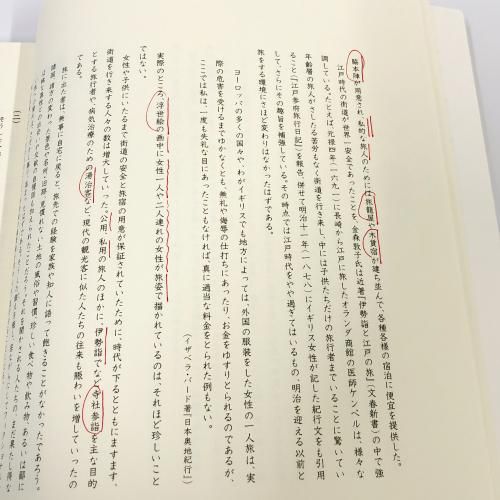 脇本陣が用意され、私的な旅人のためには旅籠屋や木賃宿が建ち並んで、各種各様の宿泊に便宜を提供した。
江戸時代の街道が世界一安全であったことを、金森敦子氏は近著『伊勢詣と江戸の旅』（文春新書）の中で強
調している。たとえば、元禄四年（一六九一）に長崎から江戸に旅したオランダ商館の医師ケンペルは、様々な
年齢層の旅人がさしたる苦労もなく街道を行き来し、中には子供たちだけの旅行者までいることに驚いてい
ること（『江戸参府旅行日記』）を報告、併せて明治十一年（一八七八）にイギリス女性が記した紀行文をも引用
して、さらにその趣旨を補強している。その時点では江戸時代をやや過ぎてはいるものの、明治を迎える以前と
旅をする環境にさほど変わりはなかったはずである。
ヨーロッパの多くの国々や、わがイギリスでも地方によっては、外国の服装をした女性の一人旅は、実
際の危害を受けるまでゆかなくとも、無礼や侮辱の仕打ちにあったり、お金をゆすりとられるのであるが、
ここでは私は、一度も失礼な目にあったこともなければ、真に過当な料金をとられた例もない。
（イザベラ・バード著『日本奥地紀行』）
実際のところ、浮世絵の画中に女性一人や二人連れの女性が旅姿で描かれているのは、それほど珍しいこと
ではない。
女性や子供にいたるまで街道の安全と旅宿の用意が保証されていたために、時代が下るとともにますます、
街道を行き来する人々の数は増大していった。公用、私用の旅人のほかに、伊勢詣でなど寺社参詣を主な目的
とする旅行者や、病気治療のための湯治客など、現代の観光客に似た人たちの往来も賑わいを増していったの
である。
旅に出た者は、無事に自宅に戻ると、旅先での経験を家族や知人に語って飽きることがなかったであろう。